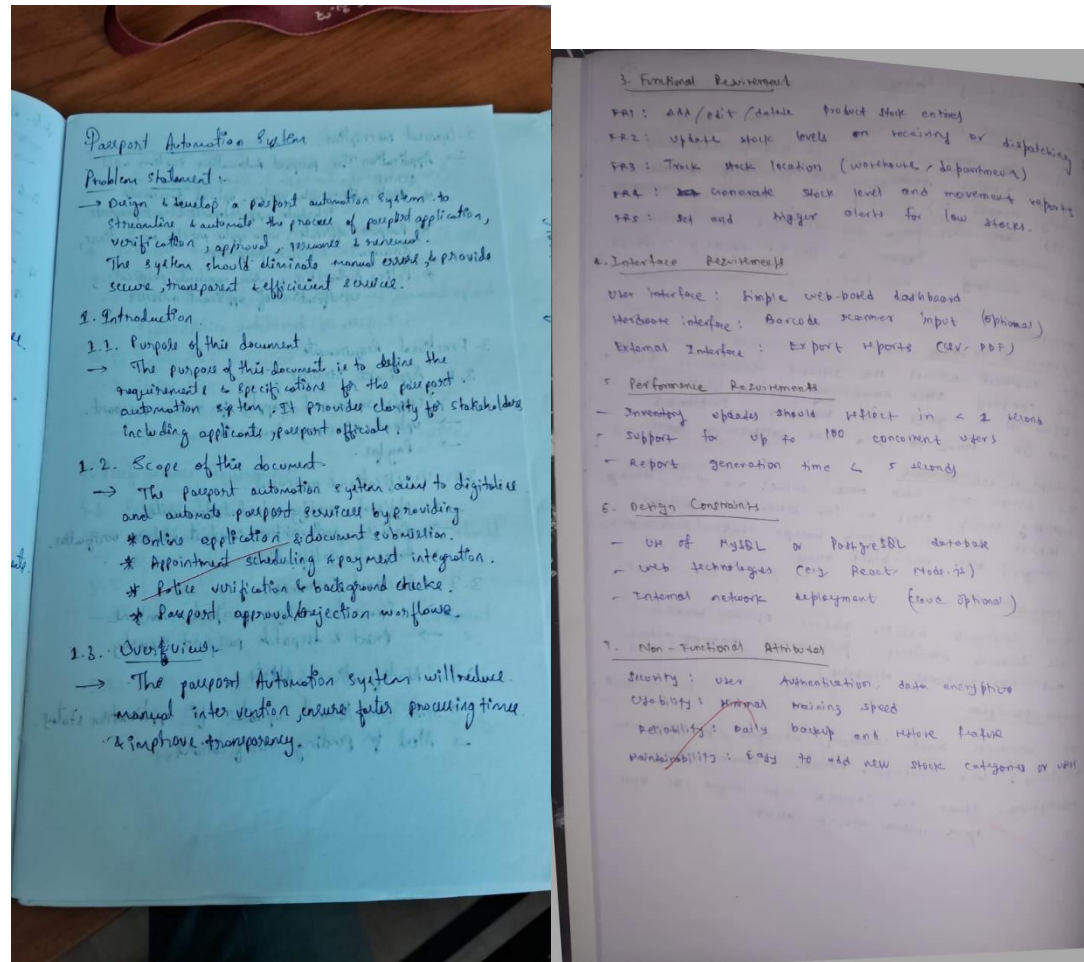 Passport Automation System
Problem Statement :-
→ Design & develop a passport automation system to
streamline & automate the process of passport application,
verification, approval, issuance & renewal.
The system should eliminate manual errors, & provide
secure, transparent & efficient service.
1. Introduction.
1.1. Purpose of this document
→ The purpose of this document is to define the
requirements & specifications for the passport
automation system. It provides clarity for stakeholders
including applicants, passport officials.
1.2. Scope of this document.
→ The passport automation system aims to digitalise
and automate passport services by providing
* Online application & document submission.
* Appointment scheduling & payment integration.
* Police verification & background checks.
* Passport approval/rejection workflows.
1.3. Overview :-
→ The passport Automation system will reduce
manual intervention, ensure faster processing times
& improve transparency.
3. Functional Requirement
FR1 : Add/edit/delete product stock entries
FR2 : update stock levels on receiving or dispatching
FR3 : Track stock location (warehouse, department)
FR4 : Generate stock level and movement reports
FR5 : set and trigger alerts for low stocks.
4. Interface Requirements
User interface : Simple web-based dashboard
Hardware interface : Barcode scanner input (optional)
External Interface : Export reports (CSV, PDF)
5. Performance Requirements
- Inventory updates should reflect in < 2 seconds
- Support for up to 100 concurrent users
- Report generation time < 5 seconds
6. Design Constraints
- Use of MySQL or PostgreSQL database
- Web technologies (e.g. React, Node.js)
- Internal network deployment (cloud optional)
7. Non-Functional Attributes
Security : user Authentication, data encryption
Usability : Minimal training speed
Reliability : Daily backup and restore feature
Maintainability : Easy to add new stock categories or users